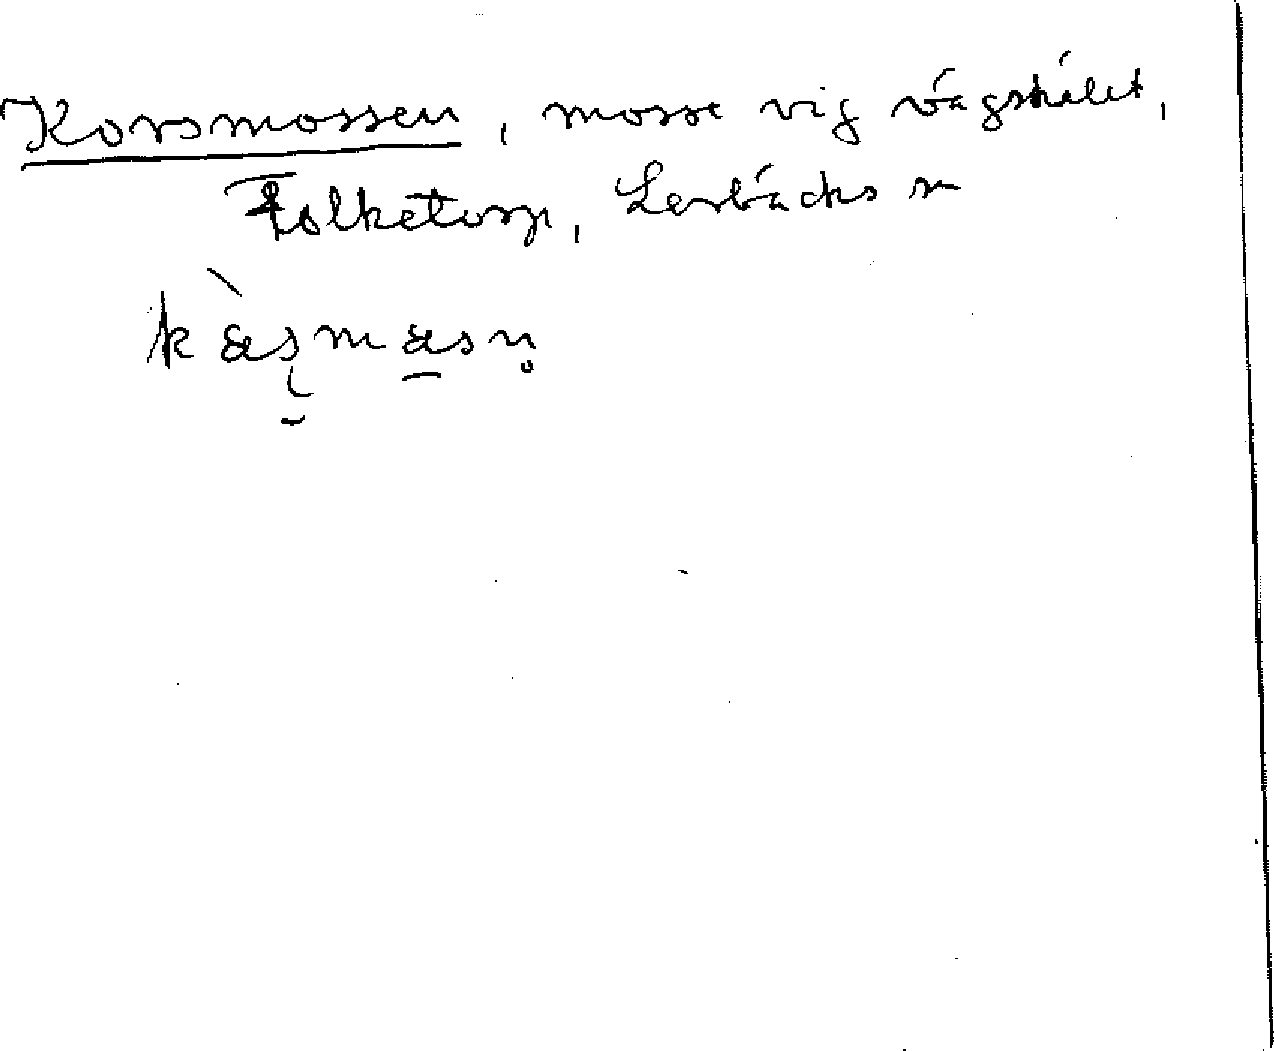 Korsmossen, mosse vid vägskälet,
Folketorp, Lerbäcks sn